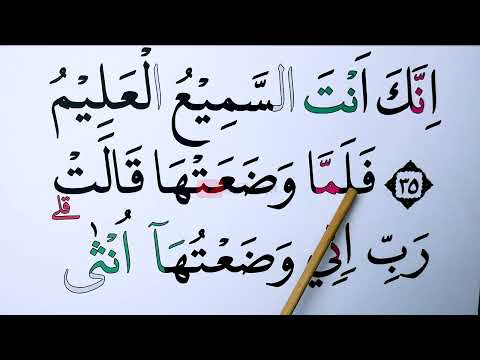 اِنَّكَ اَنْتَ السَّمِيْعُ الْعَلِيْمُ
٣٥ فَلَمَّا وَضَعَتْهَا قَالَتْ
رَبِّ اِنِّيْ وَضَعْتُهَآ اُنْثٰى قلے